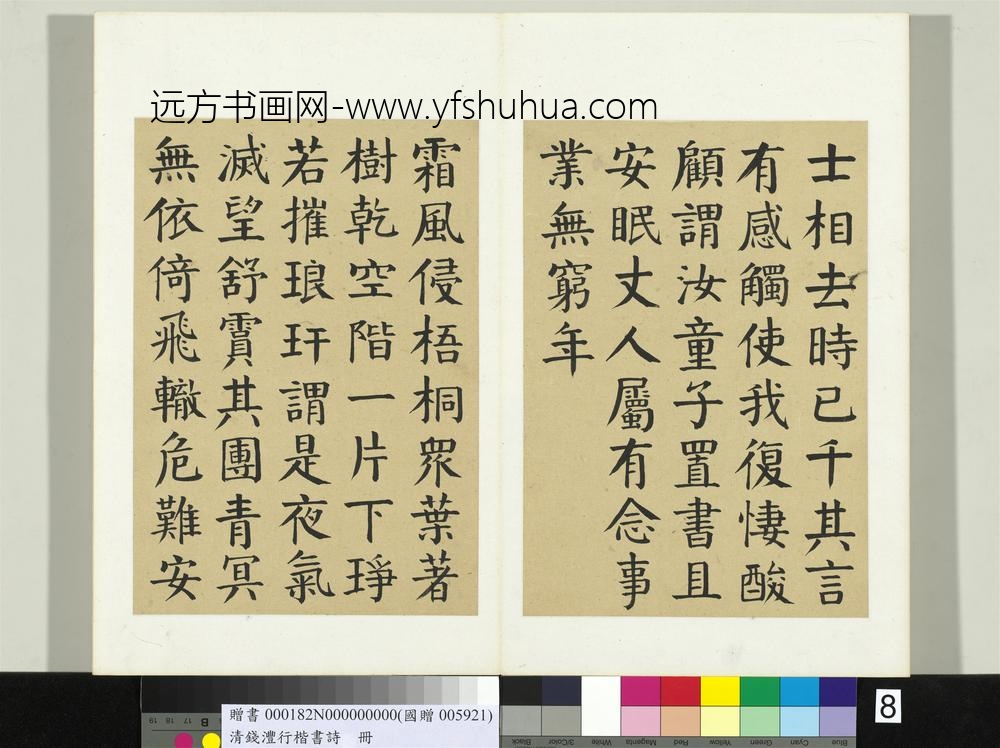 远方书画网-www.yfshuhua.com
士相去時已千其言
有感觸使我復悽酸
顧謂汝童子置書且
安眠丈人屬有念事
業無窮年
霜風侵梧桐眾葉著
樹乾空階一片下琤
若摧琅玕謂是夜氣
滅望舒霣其團青冥
無依倚飛轍危難安
8
贈書 000182N000000000(國贈 005921)
清錢澧行楷書詩 冊
19 18 17 16 B
Black
3/Color
White
Magenta
Red
Yellow
Green
Cyan
Blue